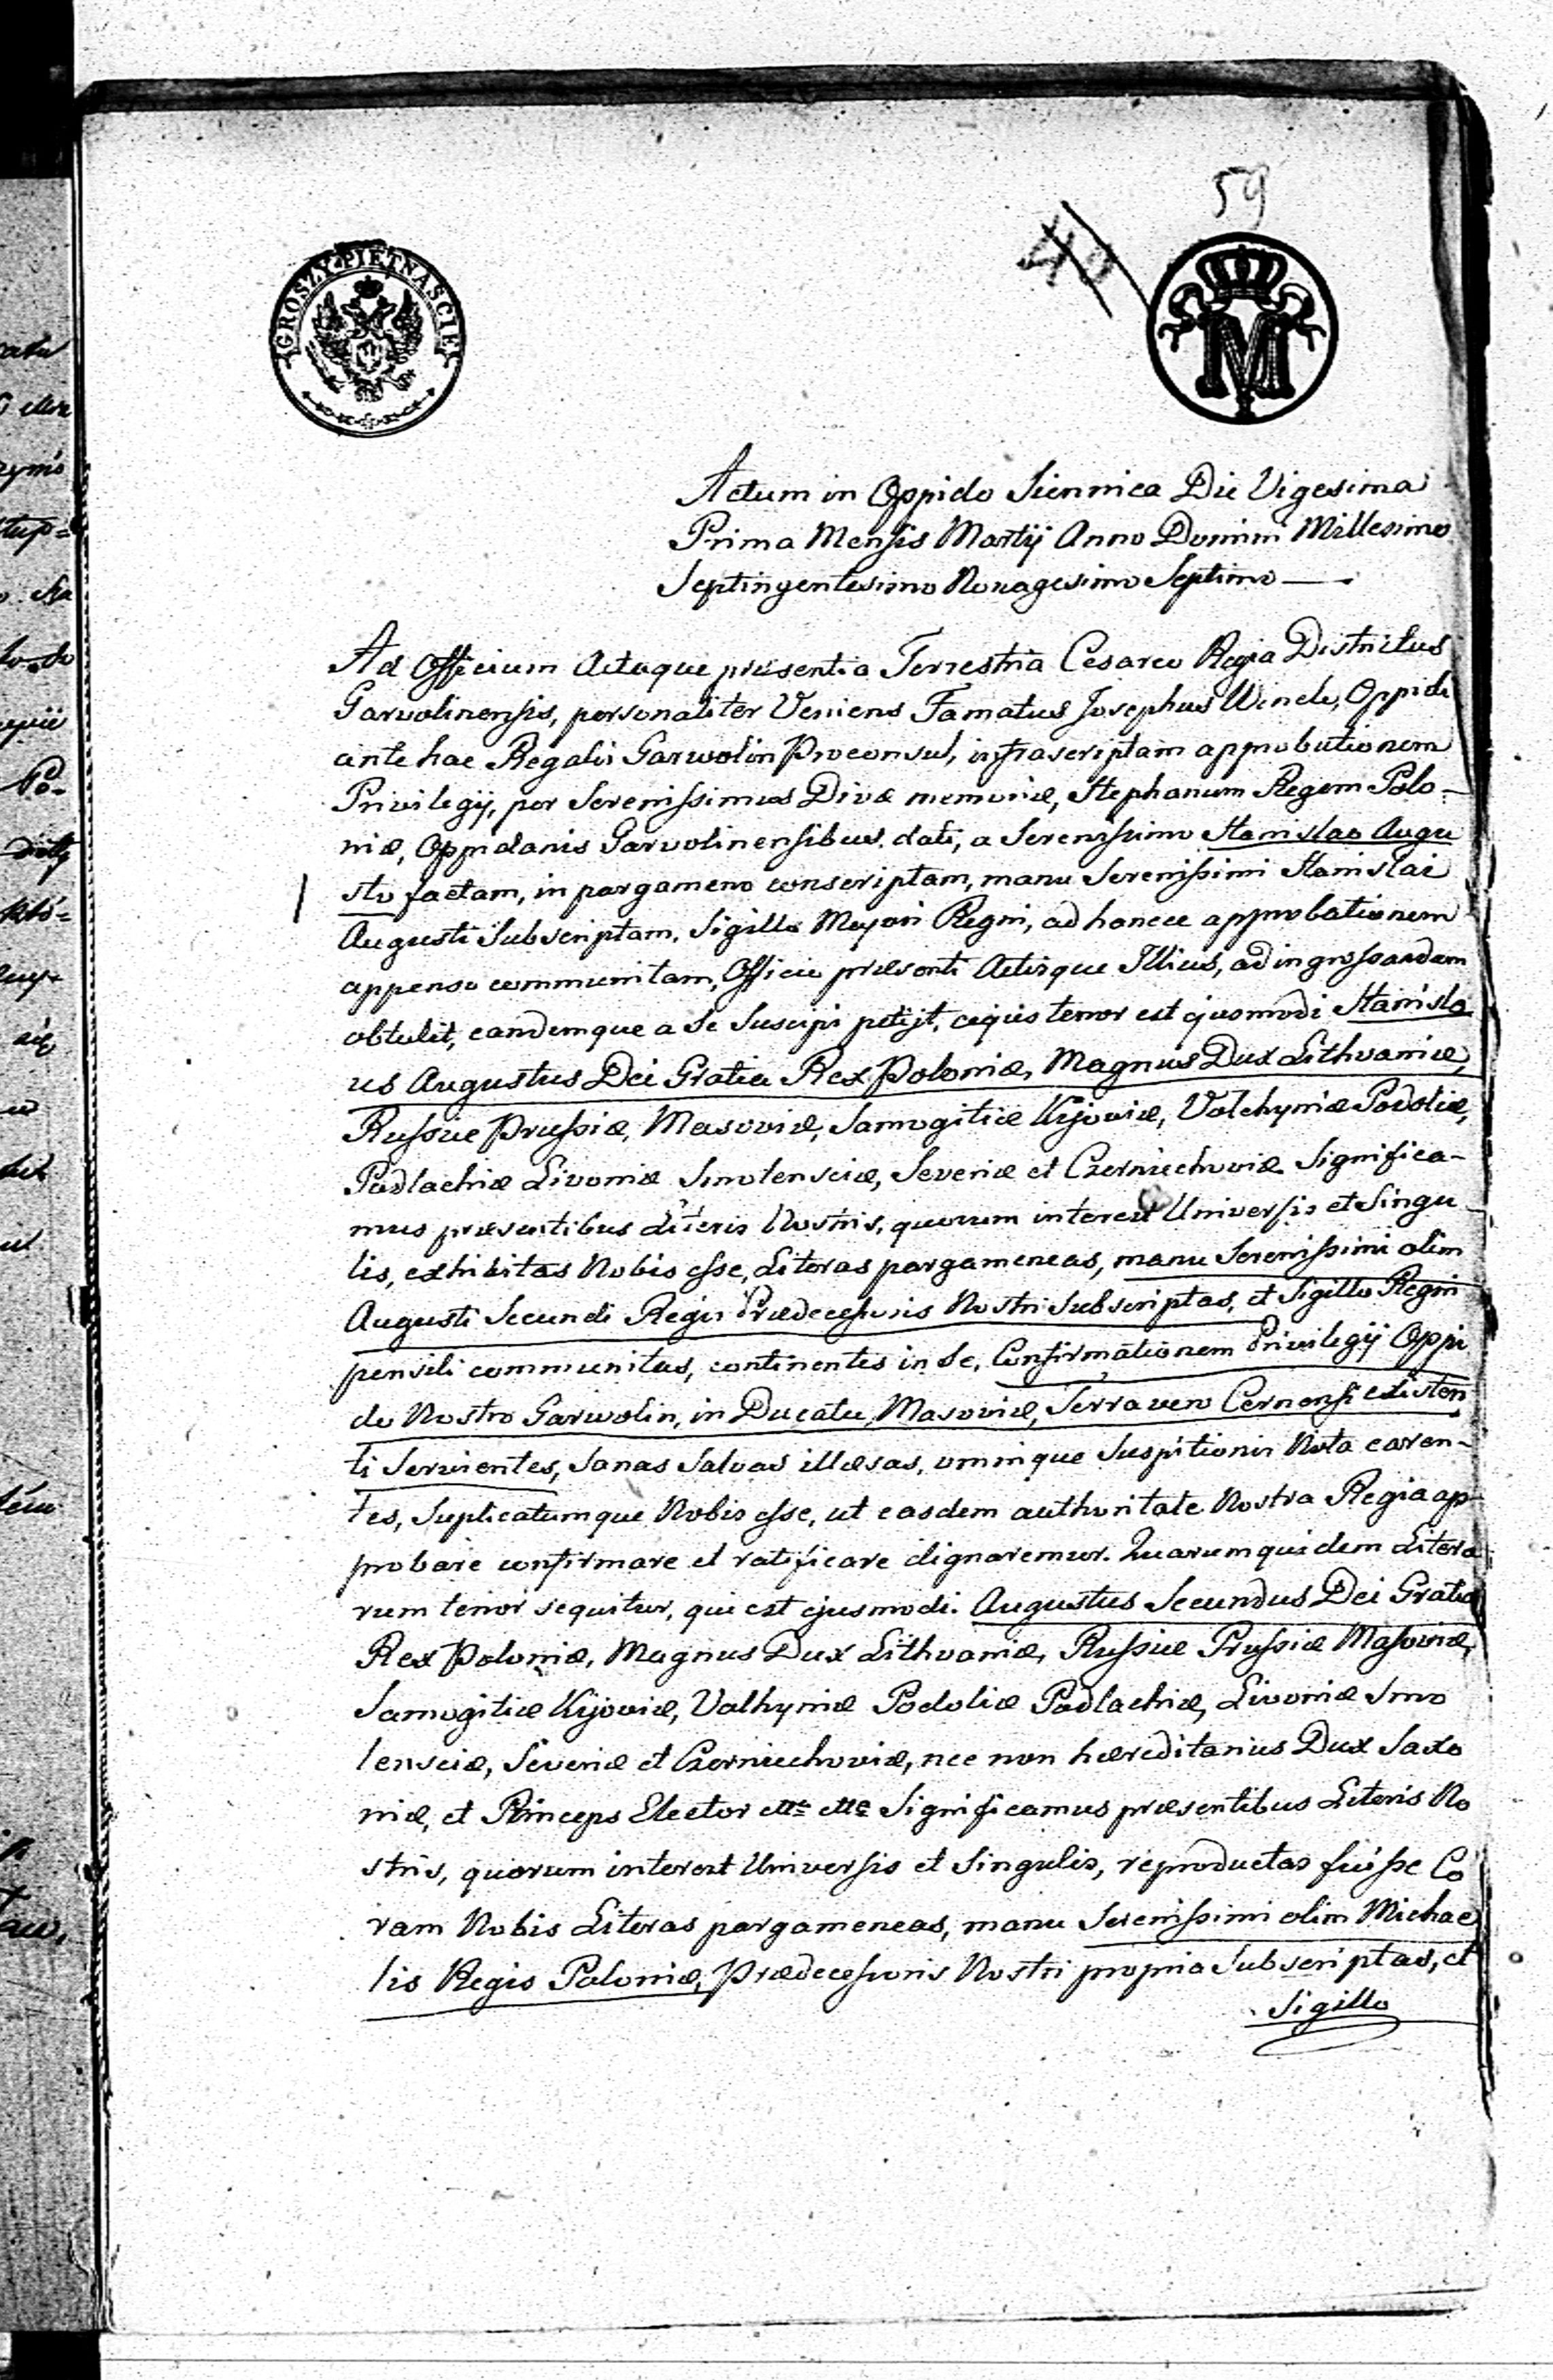 59
GROSZY PIETNASCIE
M
Actum in Oppido Siennica Die Vigesima
Prima Mensis Martij Anno Domini Millesimo
Septingentesimo Nonagesimo Septimo —
Ad Officium Actaque præsentia Terrestria Cesareo Regia Districtus
Garvolinensis, personaliter Veniens Famatus Josephus, Oppidi
ante hac Regalis Garwolin Proconsul, infrascriptam approbationem
Privilegij, per Serenissimus Divæ memoriæ, Stephanum Regem Polo-
niæ, Oppidanis Garvolinensibus dati, a Serenissimo Stanislao Augu
sto factam, in pargameno conscriptam, manu Serenissimi Stanislai
Augusti Subscriptam, Sigillo Majori Regni, ad hancce approbationem
appenso communitam, Officio præsenti Actisque Illius, ad ingrossandam
obtulit, eandemque a Se Suscipi petijt, cujus tenor est ejusmodi Stanisla
us Augustus Dei Gratia Rex Poloniæ, Magnus Dux Lithvaniæ,
Russiæ Prussiæ, Masoviæ, Samogitiæ Kijoviæ, Volchyniæ Podoliæ,
Podlachiæ Livoniæ Smolensciæ, Severiæ et Czerniechoviæ Significa-
mus præsentibus Literis Nostris, quorum interest Universis et Singu
lis, exhibitas Nobis esse, Literas pargameneas, manu Serenissimi olim
Augusti Secundi Regis Prædecessoris Nostri Subscriptas, et Sigillo Regni
pensili communitas, continentes in Se, Confirmationem Privilegij Oppi
do Nostro Garwolin, in Ducatu Masoviæ, Terra vero Cernensi existen
ti Servientes, Sanas Salvas illæsas, omnique Suspitionis Nota caren-
tes, Suplicatumque Nobis esse, ut easdem authoritate Nostra Regia ap-
probare confirmare et ratificare dignaremur. Quarum quidem Litera
rum tenor sequitur, qui est ejusmodi. Augustus Secundus Dei Gratia
Rex Poloniæ, Magnus Dux Lithvaniæ, Russiæ Prussiæ Masoviæ,
Samogitiæ Kijoviæ, Valhyniæ Podoliæ Podlachiæ, Livoniæ Smo
lensciæ, Severiæ et Czerniechoviæ, nec non hæreditarius Dux Saxo
niæ, et Princeps Elector ettc ettc Significamus præsentibus Literis No
stris, quorum interest Universis et Singulis, reproductas fuisse Co
ram Nobis Literas pargameneas, manu Serenissimi olim Michae
lis Regis Poloniæ, Prædecessoris Nostri propria Subscriptas, et
Sigillo